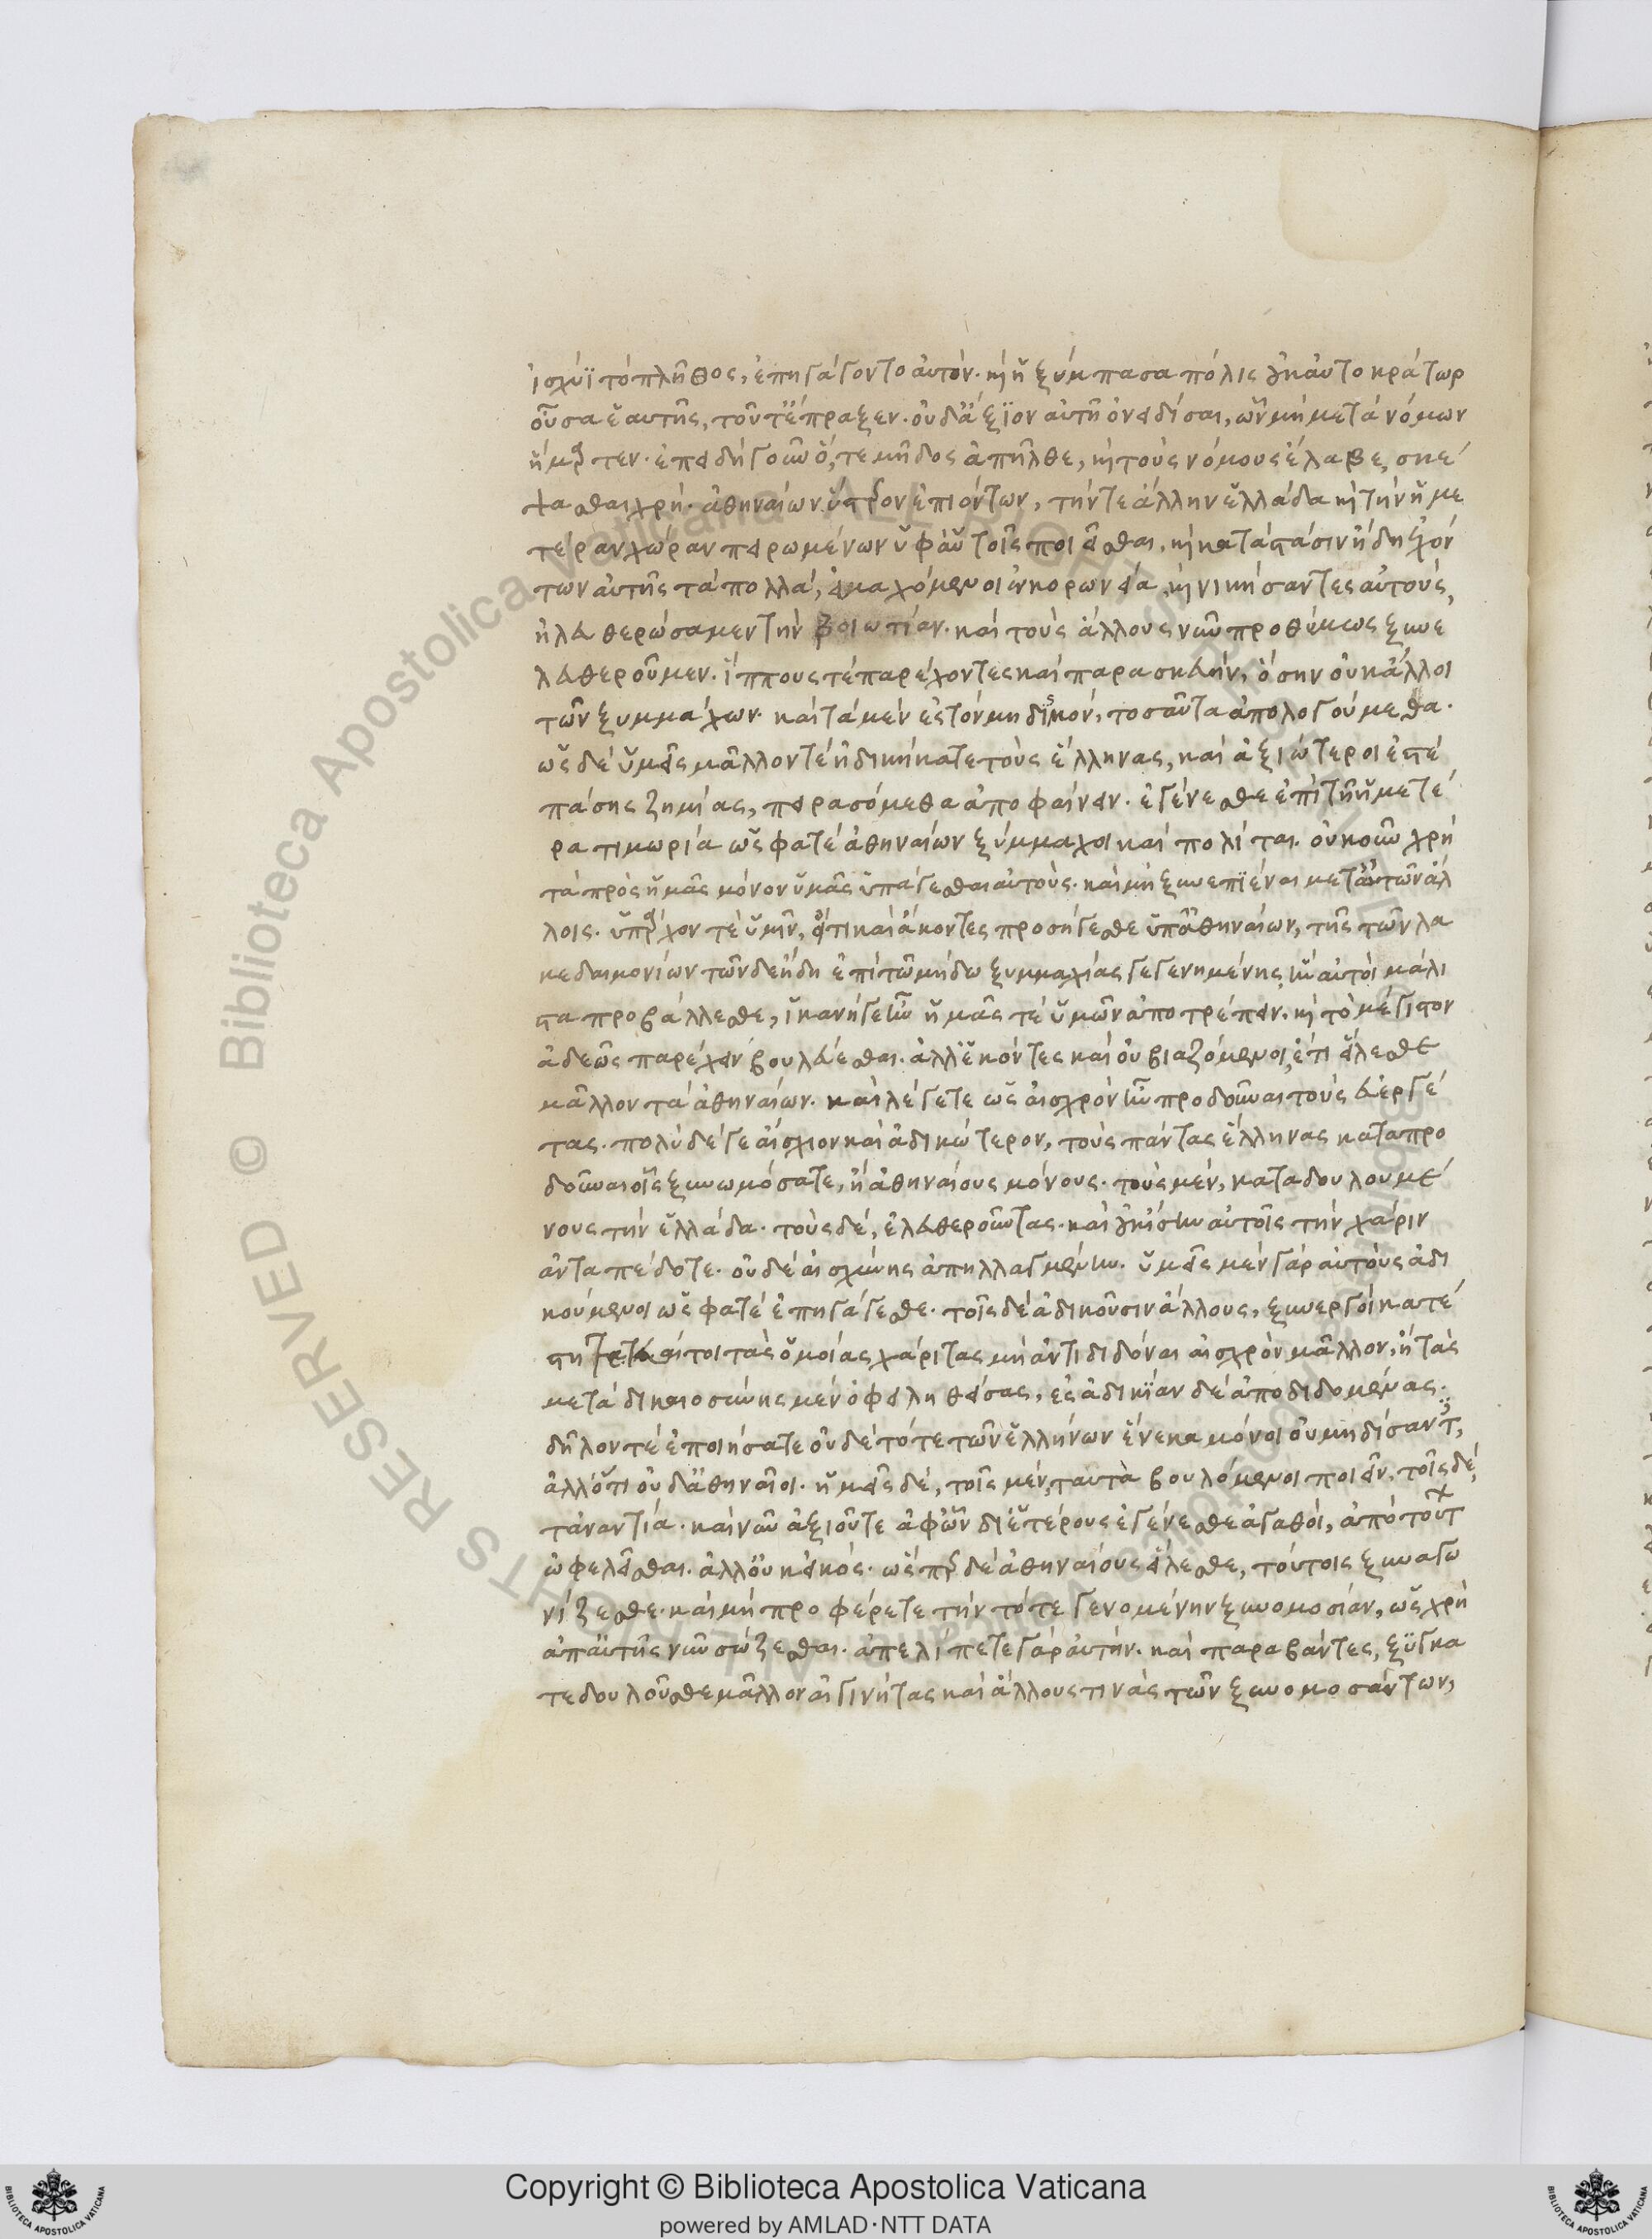 ἰσχύϊ τὸ πλῆθος, ἐπηγάγοντο αὐτόν. καὶ ἡ ξύμπασα πόλις οὐκ αὐτοκράτωρ
οὖσα ἑαυτῆς, τοῦτ' ἔπραξεν. οὐδ' ἄξιον αὐτῇ ὀνειδίσαι, ὧν μὴ μετὰ νόμων
ἥμαρτεν. ἐπειδὴ γοῦν ὅ, τε μῆδος ἀπῆλθε, καὶ τοὺς νόμους ἔλαβε, σκέ
ψασθαι χρή. ἀθηναίων ὕστερον ἐπιόντων, τήν τε ἄλλην ἑλλάδα καὶ τὴν ἡμε
τέραν χώραν πειρωμένων ὑφ' αὑτοῖς ποιεῖσθαι, καὶ κατὰ στάσιν ἤδη ἐχόν
των αὐτῆς τὰ πολλά, εἰ μαχόμενοι ἐν κορωνεία, καὶ νικήσαντες αὐτούς,
ἠλευθερώσαμεν τὴν βοιωτίαν. καὶ τοὺς ἄλλους νῦν προθύμως ξυνε
λευθεροῦμεν. ἵππους τὲ παρέχοντες καὶ παρασκευήν, ὅσην οὐκ ἄλλοι
τῶν ξυμμάχων. καὶ τὰ μὲν ἐς τὸν μηδισμόν, τοσαῦτα ἀπολογούμεθα.
ὡς δὲ ὑμεῖς μᾶλλόν τὲ ἠδικήκατε τοὺς ἕλληνας, καὶ ἀξιώτεροι ἐστὲ
πάσης ζημίας, πειρασόμεθα ἀποφαίνειν. ἐγένεσθε ἐπὶ τῇ ἡμετέ
ρα τιμωρία ὡς φατὲ ἀθηναίων ξύμμαχοι καὶ πολίται. οὐκοῦν χρῆ
τὰ πρὸς ἡμᾶς μόνον ὑμᾶς ὑπάγεσθαι αὐτούς. καὶ μὴ ξυνεπιέναι μετ' αὐτῶν ἄλ
λοις. ὑπάρχον τὲ ὑμῖν, εἴ τι καὶ ἄκοντες προσήγεσθε ὑπ' ἀθηναίων, τῆς τῶν λα
κεδαιμονίων τῶνδε ἤδη ἐπὶ τῷ μήδω ξυμμαχίας γεγενημένης, ἣν αὐτοὶ μάλι
στα προβάλλεσθε, ἱκανή γε ἦν ἡμᾶς τὲ ὑμῶν ἀποτρέπειν. καὶ τὸ μέγιστον
ἀδεῶς παρέχειν βουλεύεσθαι. ἀλλ' ἑκόντες καὶ οὐ βιαζόμενοι, ἔτι εἵλεσθε
μᾶλλον τὰ ἀθηναίων. καὶ λέγετε ὡς αἰσχρὸν ἦν προδοῦναι τοὺς εὐεργέ
τας. πολὺ δέ γε αἴσχιον καὶ ἀδικώτερον, τοὺς πάντας ἕλληνας καταπρο
δοῦναι οἷς ξυνωμόσατε, ἢ ἀθηναίους μόνους. τοὺς μὲν, καταδουλουμέ
νους τὴν ἑλλάδα. τοὺς δὲ, ἐλευθεροῦντας. καὶ οὐκ ἴσην αὐτοῖς τὴν χάριν
ἀνταπέδοτε. οὐδὲ αἰσχύνης ἀπηλλαγμένην. ὑμεῖς μὲν γὰρ αὐτοὺς ἀδι
κούμενοι ὡς φατὲ ἐπηγάγεσθε. τοῖς δὲ ἀδικοῦσιν ἄλλους, ξυνεργοὶ κατέ
στητε καίτοι τὰς ὁμοίας χάριτας μὴ ἀντιδιδόναι αἰσχρὸν μᾶλλον, ἢ τὰς
μετὰ δικαιοσύνης μὲν ὀφειληθείσας, ἐς ἀδικίαν δὲ ἀποδιδομένας.
δῆλόν τὲ ἐποιήσατε οὐδὲ τότε τῶν ἑλλήνων ἕνεκα μόνοι οὐ μηδίσαντες,
ἀλλ' ὅτι οὐδ' ἀθηναῖοι. ἡμεῖς δὲ, τοῖς μὲν, ταυτὰ βουλόμενοι ποιεῖν. τοῖς δὲ,
τἀναντία. καὶ νῦν ἀξιοῦτε ἀφ' ὧν δι' ἑτέρους ἐγένεσθε ἀγαθοί, ἀπὸ τούτων
ὠφελεῖσθαι. ἀλλ' οὐκ εἰκός. ὥσπερ δὲ ἀθηναίους εἵλεσθε, τούτοις ξυναγω
νίζεσθε. καὶ μὴ προφέρετε τὴν τότε γενομένην ξυνομοσίαν, ὡς χρὴ
ἀπ' αὐτῆς νῦν σώζεσθαι. ἀπελίπετε γὰρ αὐτήν. καὶ παραβάντες, ξυγκα
τεδουλοῦσθε μᾶλλον αἰγινήτας καὶ ἄλλους τινὰς τῶν ξυνομοσάντων,
Copyright © Biblioteca Apostolica Vaticana
powered by AMLAD·NTT DATA